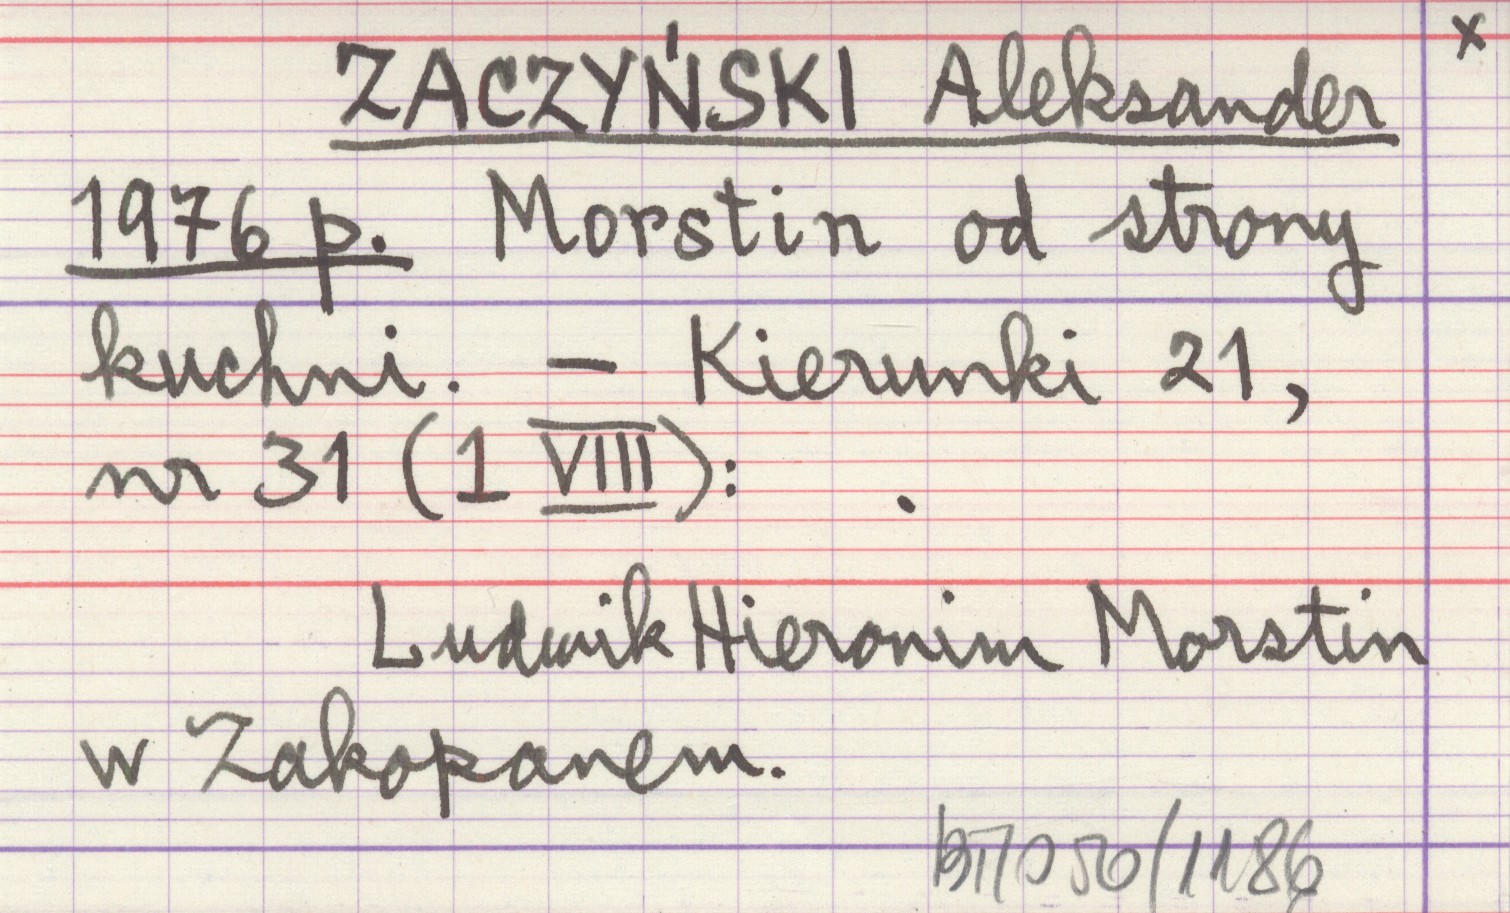 x
ZACZYŃSKI Aleksander
1976 p. Morstin od strony
kuchni. – Kierunki 21,
nr 31 (1 VIII): .
Ludwik Hieronim Morstin
w Zakopanem.